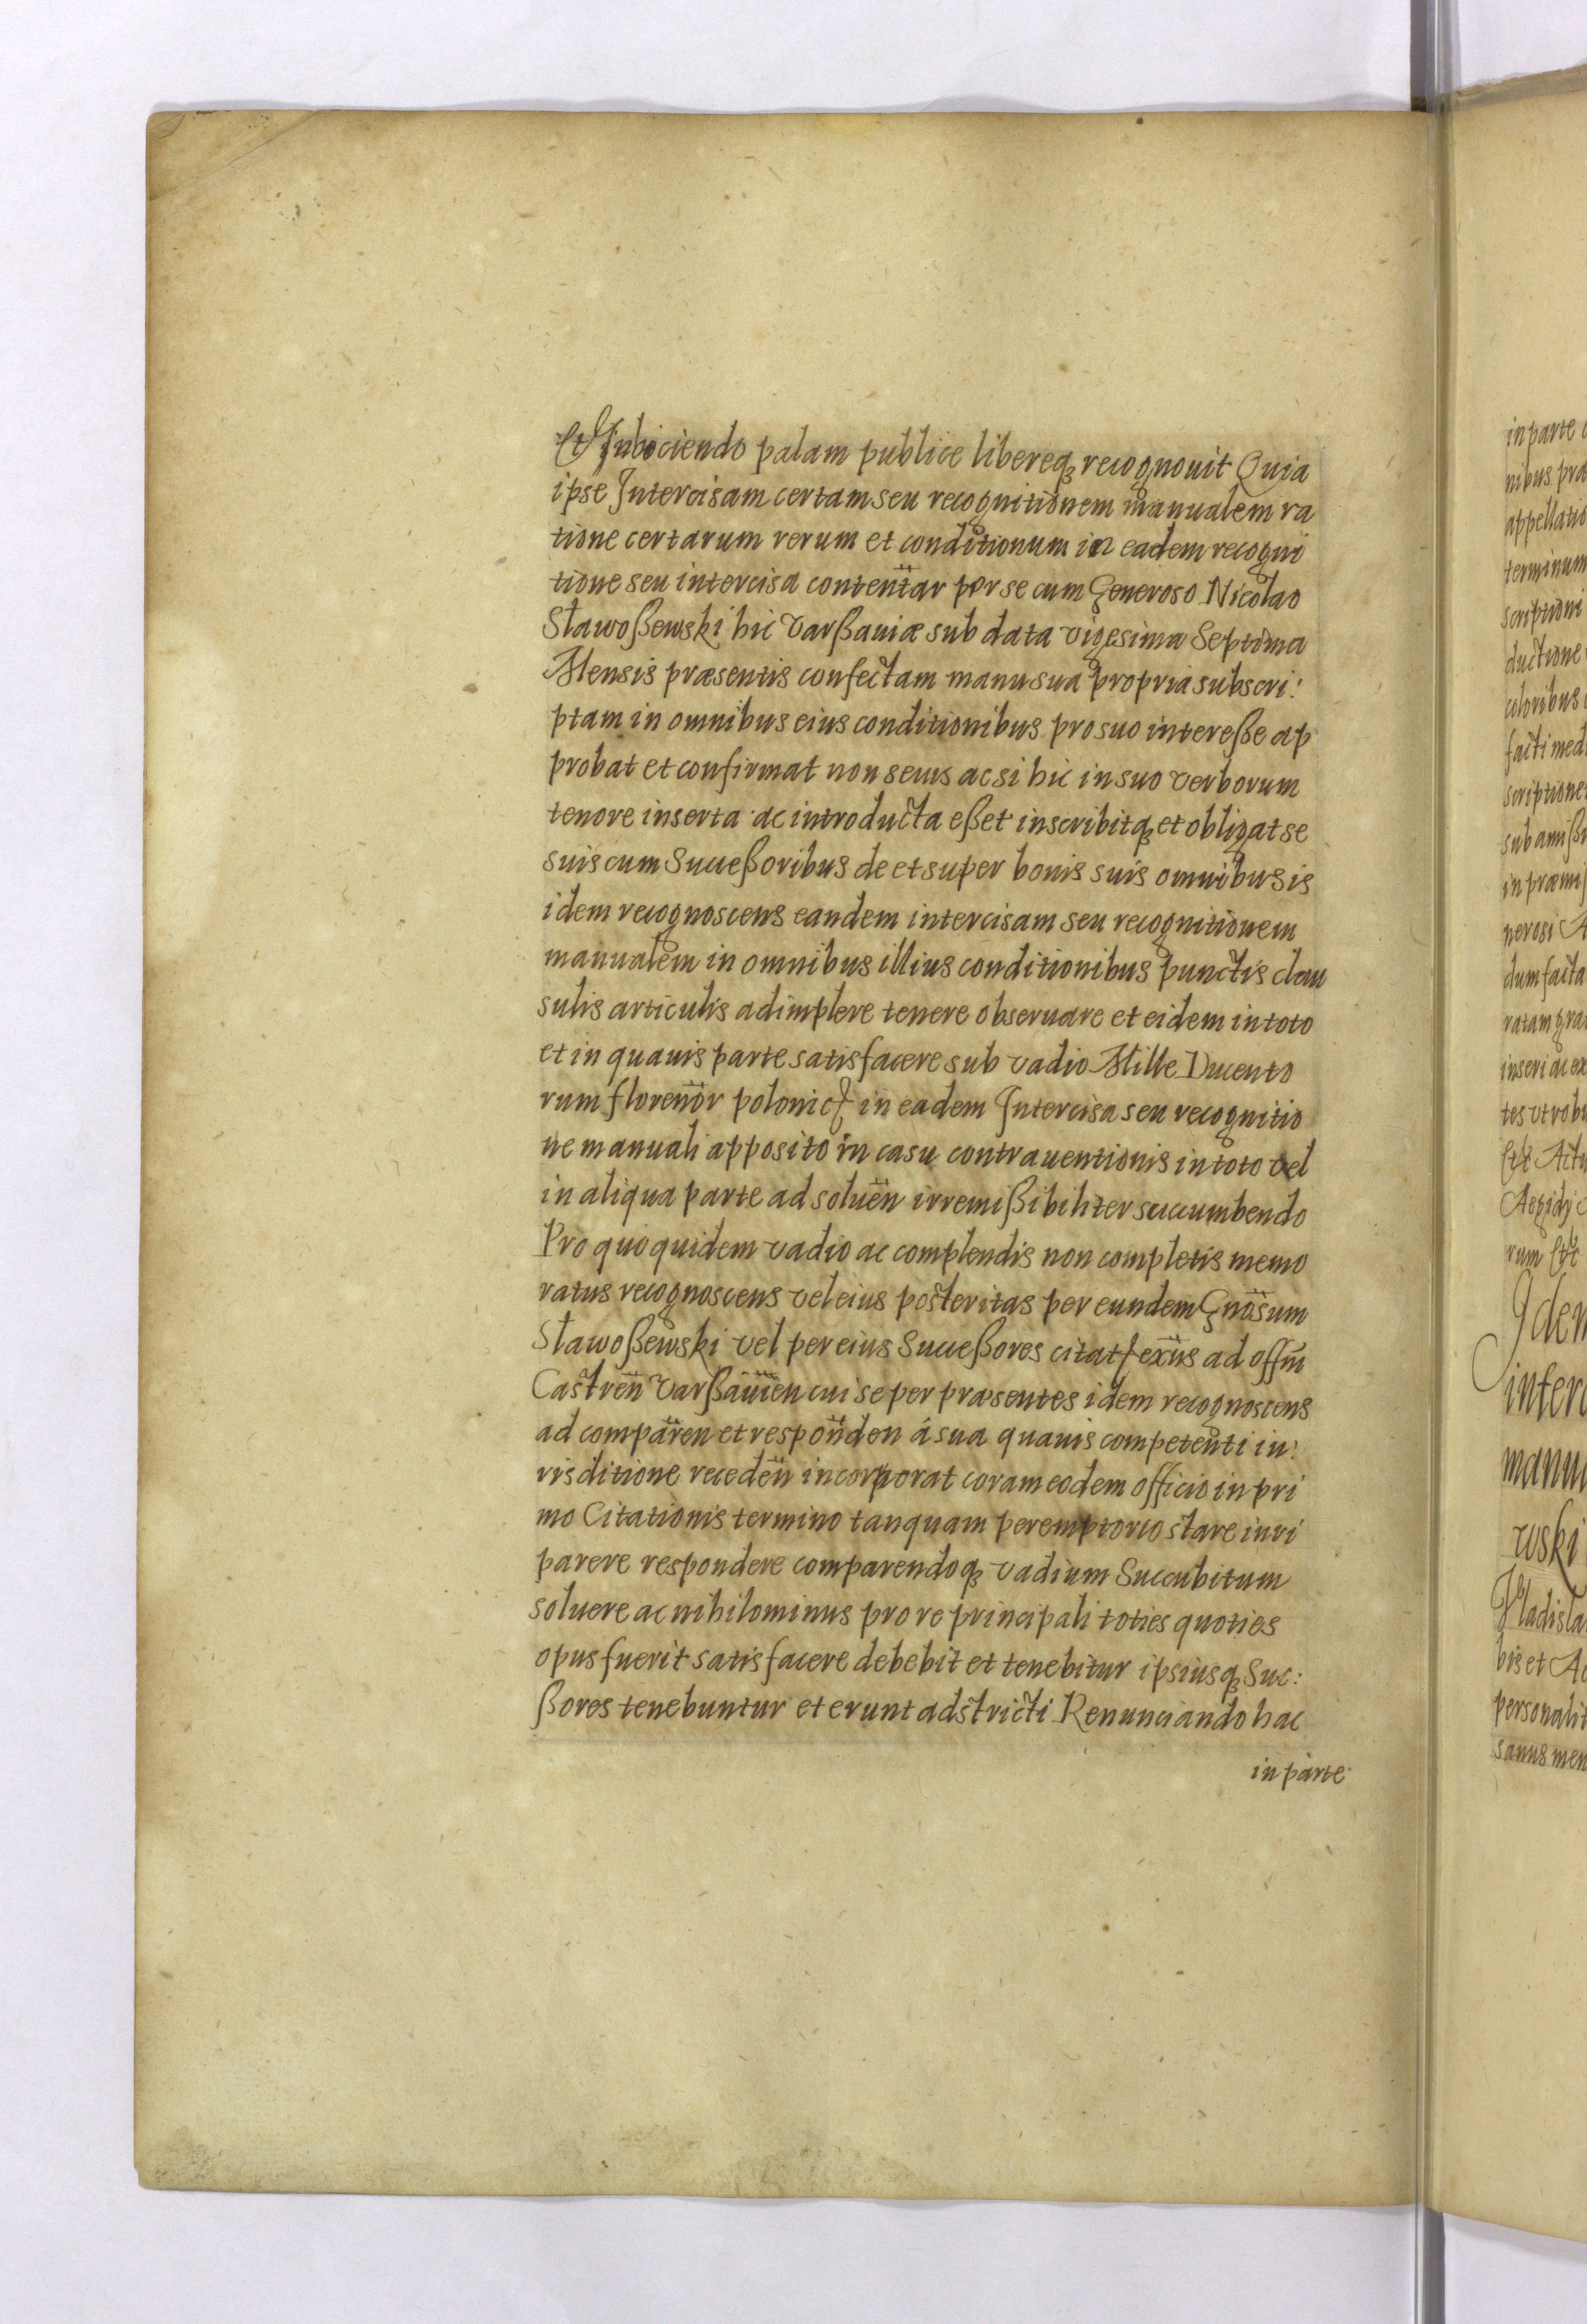 Et subiiciendo palam publice libereq recognouit Quia
ipse Intercisam certam seu recognitionem manualem ra
tione certarum rerum et conditionum in eadem recogni
tione seu intercisa content̄ar per se cum Generoso Nicolao
Sławoßewski hic Varßauiæ sub data vigesima Septima
Mensis præsentis confectam manu sua propria subscri:
ptam in omnibus eius conditionibus pro suo intereße ap
probat et confirmat non secus ac si hic in suo verborum
tenore inserta ac introducta eßet inscribitq et obligat se
suis cum Succeßoribus de et super bonis suis omnibus is
idem recognoscens eandem intercisam seu recognitionem
manualem in omnibus illius conditionibus punctis clau
sulis articulis adimplere tenere obseruare et eidem in toto
et in quauis parte satisfacere sub vadio Mille Ducento
rum florenor̄ polonic in eadem Intercisa seu recognitio
ne manuali apposito in casu contrauentionis in toto vel
in aliqua parte ad soluen̄ irremißibiliter succumbendo
Pro quo quidem vadio ac complendis non completis memo
ratus recognoscens vel eius posteritas per eundem Gn̄osum
Sławoßewski vel per eius Succeßores citat ex̄us ad offm̄
Castren̄ Varßauien̄ cui se per præsentes idem recognoscens
ad comparen̄ et responden̄ á sua quauis competenti iu:
risditione receden̄ incorporat coram eodem officio in pri
mo Citationis termino tanquam peremptorio stare iuri
parere respondere comparendoq vadium Succubitum
soluere ac nihilominus pro re principali toties quoties
opus fuerit satisfacere debebit et tenebitur ipsiusq Suc:
ßores tenebuntur et erunt adstricti Renunciando hac
in parte
in parte
nibus præ
appellatio
terminum
scriptioni
ductione
coloribus
facti med
scriptione
sub amißi
in præmis
nerosi
dum facta
ratam gra
inseri ac ex
tes vtrobi
Actu
Aegidy
rum Etc
Idem
interc
manu
wski
Vladisla
bis et Ac
personalit
sanus men